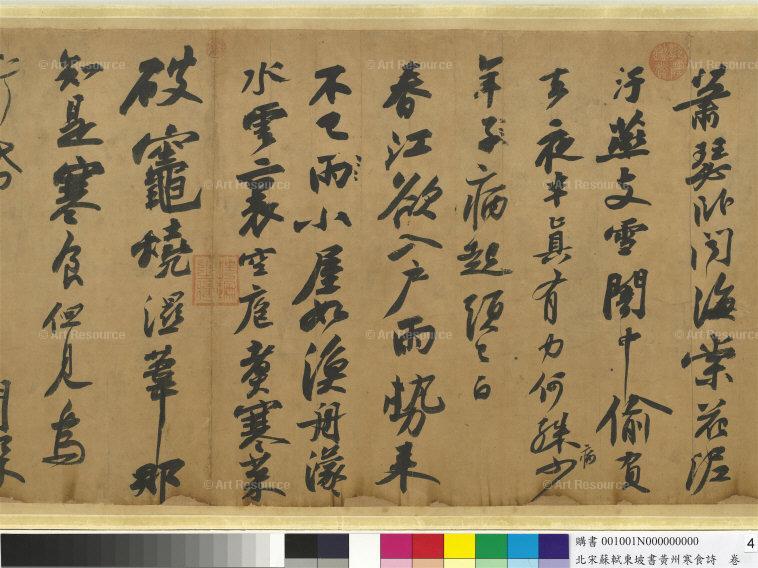 蕭瑟臥聞海棠花泥
汙燕支雪闇中偷負
去夜半真有力何殊少
病
年子病起頭已白
春江欲入戶雨勢來
不已雨小屋如漁舟濛濛
水雲裏空庖煮寒菜
破竈燒濕葦那
知是寒食但見烏
銜帋
© Art Resource
購書 001001N000000000
北宋蘇軾東坡書黃州寒食詩 卷
4